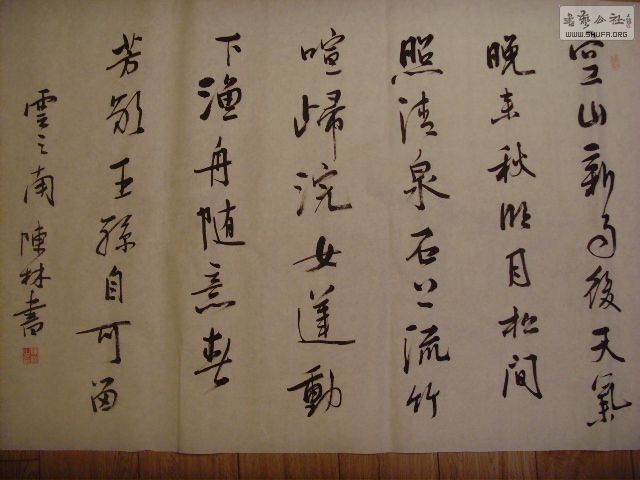 空山新雨後天氣
晚来秋明月松间
照清泉石上流竹
喧歸浣女蓮動
下渔舟随意春
芳歇王孫自可留
雲之南 陳林書
書藝公社
WWW.SHUFA.ORG